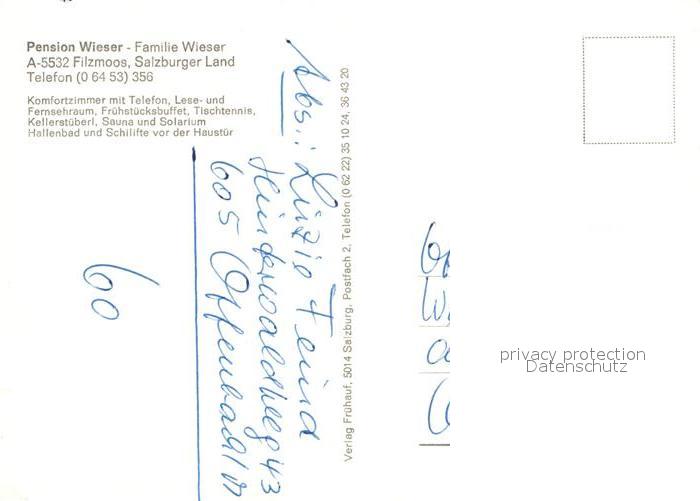 Pension Wieser - Familie Wieser
A-5532 Filzmoos, Salzburger Land
Telefon (0 64 53) 356
Komfortzimmer mit Telefon, Lese- und
Fernsehraum, Frühstücksbuffet, Tischtennis,
Kellerstüberl, Sauna und Solarium
Hallenbad und Schilifte vor der Haustür
Abs.: Luzie Feind
Hinterwaldweg 43
605 Offenbach/M
60
Verlag Frühauf, 5014 Salzburg, Postfach 2, Telefon (0 62 22) 35 10 24, 36 43 20
privacy protection
Datenschutz